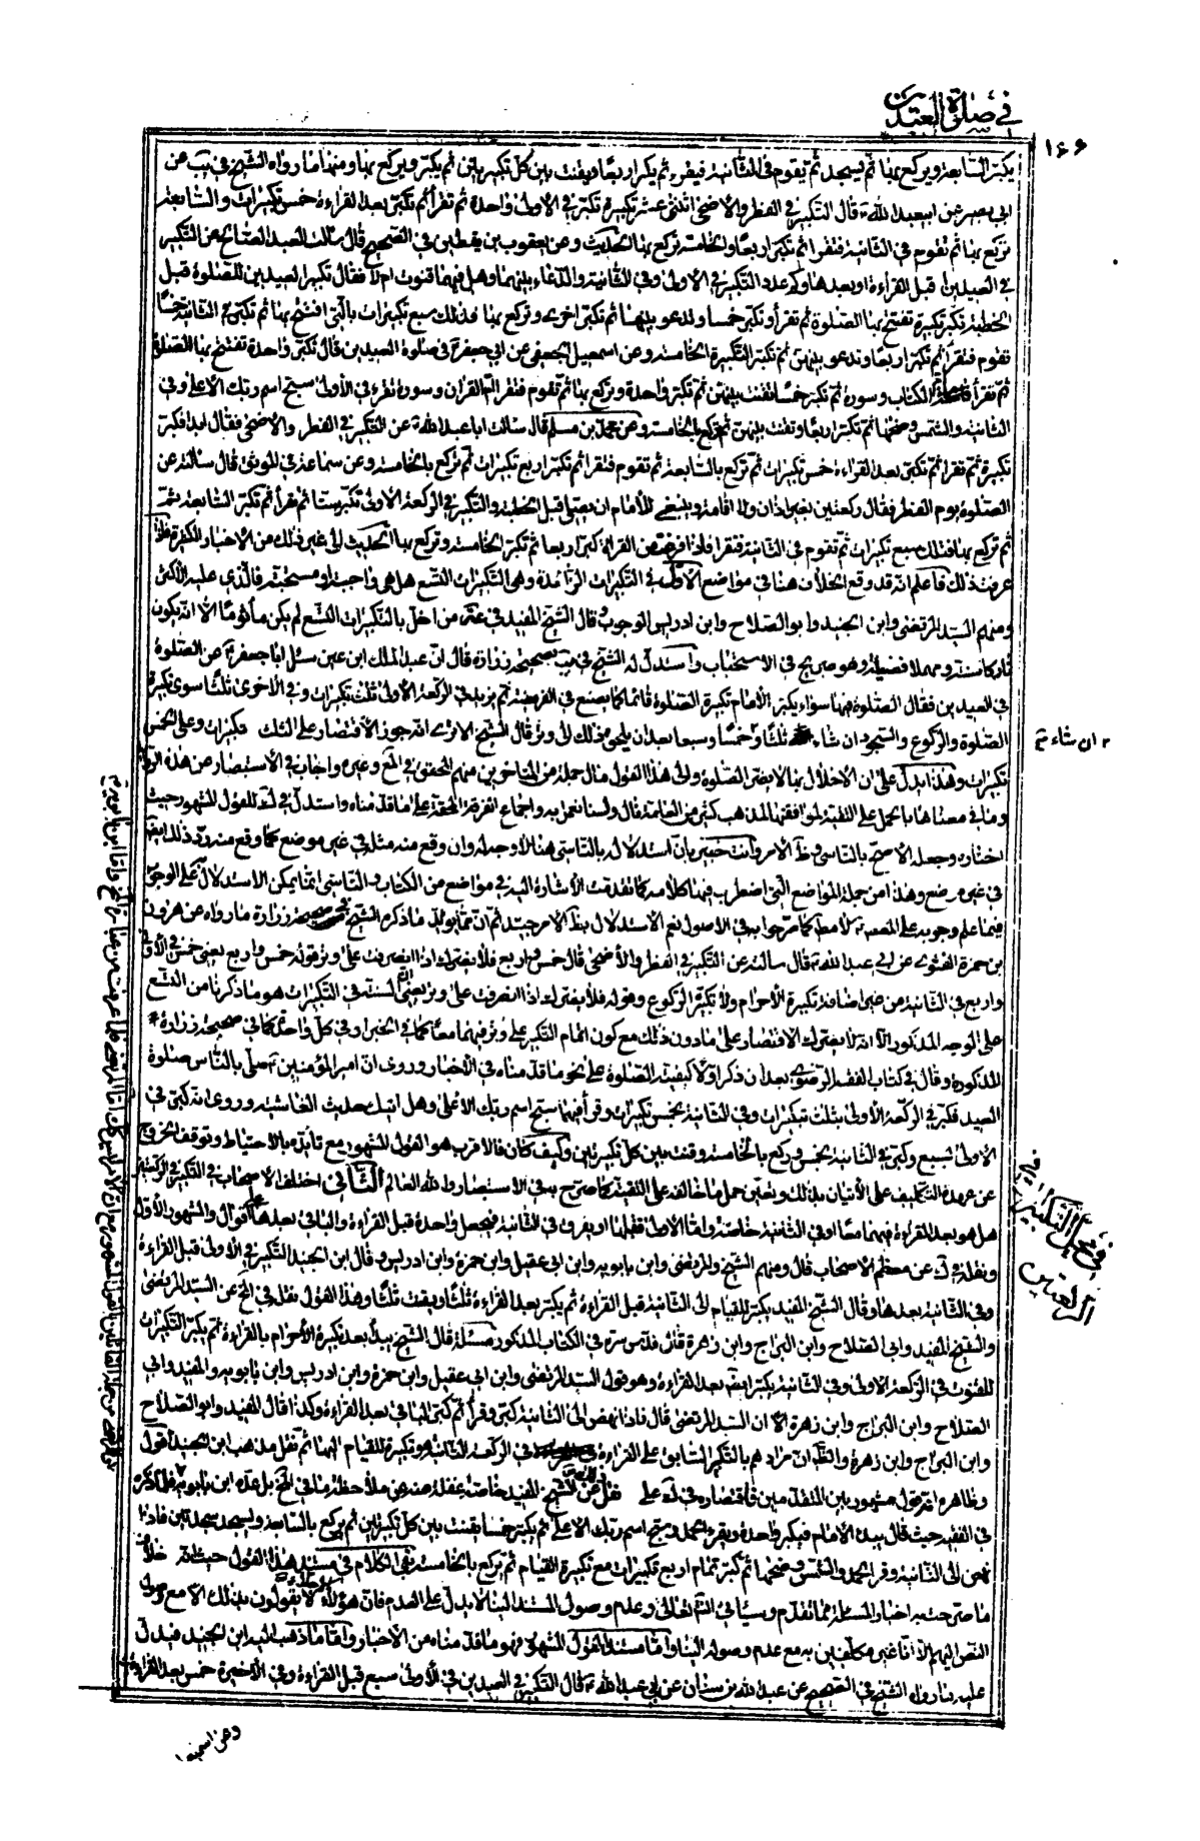 في صلوة العيدين
١٦٦
يكبر السابعة ويركع بها ثم يسجد ثم يقوم في الثانية فيقرء ثم يكبر اربعا ويقنت بين كل تكبيرتين ثم يكبر ويركع بها ومنها ما رواه الشيخ في يب عن
ابي بصير عن ابيعبد الله ع قال التكبير في الفطر والاضحى اثنتي عشر تكبيرة تكبر في الأولى واحدة ثم تقرأ ثم تكبر بعد القراءة خمس تكبيرات والسابعة
تركع بها ثم تقوم في الثانية فتقرأ ثم تكبر اربعا والخامسة تركع بها الحديث وعن يعقوب بن يقطين في الصحيح قال سألت العبد الصالح عن التكبير
في العيدين قبل القراءة او بعدها وكم عدد التكبير في الاولى وفي الثانية والدعاء بينهما وهل فيهما قنوت ام لا فقال تكبير العيدين للصلوة قبل
الخطبة تكبر تكبيرة تفتتح بها الصلوة ثم تقرأ وتكبر خمسا وتدعو بينها ثم تكبر اخرى وتركع بها فذلك سبع تكبيرات بالتي افتتح بها ثم تكبر في الثانية خمسا
تقوم فتقرأ ثم تكبر اربعا وتدعو بينهن ثم تكبر التكبيرة الخامسة وعن اسمعيل الجعفي عن ابي جعفر ع في صلوة العيدين قال تكبر واحدة تفتتح بها الصلوة
ثم تقرأ الكتاب وسورة ثم تكبر خمسا تقنت بينهن ثم تكبر واحدة وتركع بها ثم تقوم فتقرأ ام القران وسورة تقرء في الأولى سبح اسم ربك الاعلى وفي
الثانية والشمس وضحيها ثم تكبر اربعا وتقنت بينهن ثم تركع بالخامسة وعن محمد بن مسلم قال سألت ابا عبد الله ع عن التكبير في الفطر والاضحى فقال ابدا فكبر
تكبيرة ثم تقرا ثم تكبر بعد القراءة خمس تكبيرات ثم تركع بالسابعة ثم تقوم فتقرا ثم تكبر اربع تكبيرات ثم تركع بالخامسة وعن سماعة في الموثق قال سألته عن
الصلوة يوم الفطر فقال ركعتين بغير اذان ولا اقامة وينبغي للامام ان يصلي قبل الخطبة والتكبير في الركعة الاولى تكبر ستا ثم تقرأ ثم تكبر السابعة ثم
ثم تركع بها فتلك سبع تكبيرات ثم تقوم في الثانية فتقرا فاذا فرغت من القراءة كبر اربعا ثم تكبر الخامسة وتركع بها الحديث الى غير ذلك من الاخبار الكثيرة
عرفت ذلك فاعلم انه قد وقع الخلاف هنا في مواضع الأول في التكبيرات الزائدة وهي التكبيرات التسع هل هي واجبة او مستحبة فالذي عليه الأكثر
ومنهم السيد المرتضى وابن الجنيد وابو الصلاح وابن ادريس الوجوب وقال الشيخ المفيد في عة من اخل بالتكبيرات التسع لم يكن مأثوما الا انه يكون
تاركا سنة ومهملا فضيلة وهو صريح في الاستحباب واستدل له الشيخ في يب بصحيحة زرارة قال ان عبد الملك ابن اعين سئل ابا جعفر ع عن الصلوة
في العيدين فقال الصلوة فيهما سواء يكبر الامام تكبيرة الصلوة قائما كما يصنع في الفريضة ثم يزيد في الركعة الأولى ثلث تكبيرات وفي الاخرى ثلثا سوى تكبيرة
الصلوة والركوع والسجود ان شاء ثلثا وخمسا وسبعا بعد ان يلحق ذلك الى وتر قال الشيخ الا ترى انه جوز الاقتصار على الثلث تكبيرات وعلى الخمس
ان شاء ثم
تكبيرات وهذا يدل على ان الاخلال بها لا يضر الصلوة والى هذا القول مال جملة من المتأخرين منهم المحقق في المع وغيره واجاب في الاستبصار عن هذه
وما في معناها بالحمل على التقية لموافقتها لمذهب كثير من العامة قال ولسنا نعمل به واجماع الفرقة المحقة على ما قدمناه واستدل في لف للقول المشهور حيث
اختاره وجعله الاصح بالتاسي وظ الامر وانت خبير بان استدلاله بالتاسي هنا لا وجه له وان وقع منه مثله في غير موضع كما وقع منه رد ذلك ايضا
في غير موضع وهذا من جملة المواضع التي اضطرب فيها كلامه كما تقدمت الاشارة اليه في مواضع من الكتاب والتاسي انما يمكن الاستدلال به على الوجوب
فيما علم وجوبه على المعصوم ع لا مطلقا كما صرحوا به في الاصول نعم الاستدلال بظ الامر جيد ثم ان مما يؤيد ما ذكره الشيخ صحيحة زرارة ما رواه عن هرون
بن حمزة الغنوي عن ابي عبد الله ع قال سألته عن التكبير في الفطر والأضحى قال خمس واربع فلا يضرك اذا انصرفت على وتر قوله خمس واربع يعني خمس في الأولى
واربع في الثانية من غير اضافة تكبيرة الأحرام ولا تكبيرة الركوع وقوله فلا يضرك اذا انصرفت على وتر يعني السنة في التكبيرات هو ما ذكرنا من التسع
على الوجه المذكور الا انه لا يضرك الاقتصار على ما دون ذلك مع كون اتمام التكبير على وتر فيهما معا كما في الخبر او في كل واحدة كما في صحيحة زرارة
المذكورة وقال في كتاب الفقه الرضوي بعد ان ذكر اولا كيفية الصلوة على نحو ما قدمناه في الأخبار وروى ان امير المؤمنين ع صلى بالناس صلوة
العيد فكبر في الركعة الأولى بثلث تكبيرات وفي الثانية بخمس تكبيرات وقرأ فيهما سبح اسم ربك الأعلى وهل اتيك حديث الغاشية وروى انه كبر في
الاولى بسبع وكبر في الثانية بخمس وركع بالخامسة وقنت بين كل تكبيرتين وكيف كان فالاقرب هو القول المشهور مع تأيده بالاحتياط وتوقف الخروج
عن عهدة التكليف على الأتيان بذلك وتعين حمل ما خالفه على التقية كما صرح به في الاستبصار والله العالم الثاني اختلف الاصحاب في التكبير في الركعتين
هل هو بعد القراءة فيهما معا او في الثانية خاصة واما الاولى فقبلها او يفرق في الثانية فيجعل واحدة قبل القراءة والباقي بعدها اقوال والمشهور الأول
في محل التكبير في الركعتين
ونقله في لف عن معظم الأصحاب قال ومنهم الشيخ والمرتضى وابن بابويه وابن ابي عقيل وابن حمزة وابن ادريس وقال ابن الجنيد التكبير في الاولى قبل القراءة
وفي الثانية بعدها وقال الشيخ المفيد يكبر للقيام الى الثانية قبل القراءة ثم يكبر بعد القراءة ثلثا ويقنت ثلثا وهذا القول نقل في المخ عن السيد المرتضى
والشيخ المفيد وابي الصلاح وابن البراج وابن زهرة قال قدس سره في الكتاب المذكور مسئلة قال الشيخ يبدأ بعد تكبيرة الأحرام بالقراءة ثم يكبر التكبيرات
للقنوت في الركعة الاولى وفي الثانية يكبر ايضا بعد القراءة وهو قول السيد المرتضى وابن ابي عقيل وابن حمزة وابن ادريس وابن بابويه والمفيد وابي
الصلاح وابن البراج وابن زهرة الا ان السيد المرتضى قال فاذا نهض الى الثانية كبر وقرأ ثم كبر الباقي بعد القراءة وكذا قال المفيد وابو الصلاح
وابن البراج وابن زهرة والظ ان مرادهم بالتكبير السابق على القراءة في الركعة الثانية هو تكبيرة للقيام اليها ثم نقل مذهب ابن الجنيد اقول
وظاهره انه قول مشهور بين المتقدمين فاقتصاره في لف على نقله عن الشيخ المفيد خاصة غفلة منه عن ملاحظة ما في المخ بل عده ابن بابويه فيما ذكره
في الفقيه حيث قال يبدء الامام فيكبر واحدة ويقرء الحمد وسبح اسم ربك الاعلى ثم يكبر خمسا يقنت بين كل تكبيرتين ثم يركع بالسابعة ويسجد سجدتين فاذا
نهض الى الثانية وقرا الحمد والشمس وضحيها ثم كبر تمام اربع تكبيرات مع تكبيرة القيام ثم يركع بالخامسة بقي الكلام في مستند هذا القول حيث انه خلاف
ما صرحت به اخبار المسئلة مما تقدم وسيأتي انشم تعالى وعدم وصول المستند الينا لا يدل على العدم فان هؤلاء الاجلاء لا يقولون بذلك الا مع وصول
النص اليهم الا انا غير مكلفين به مع عدم وصوله الينا واما مستند القول المشهور فهو ما قدمناه من الأخبار واما ما ذهب اليه ابن الجنيد فيدل
عليه ما رواه الشيخ في الصحيح عن عبد الله بن سنان عن ابي عبد الله ع قال التكبير في العيدين في الأولى سبع قبل القراءة وفي الأخيرة خمس بعد القراءة
وعن اسمعيل